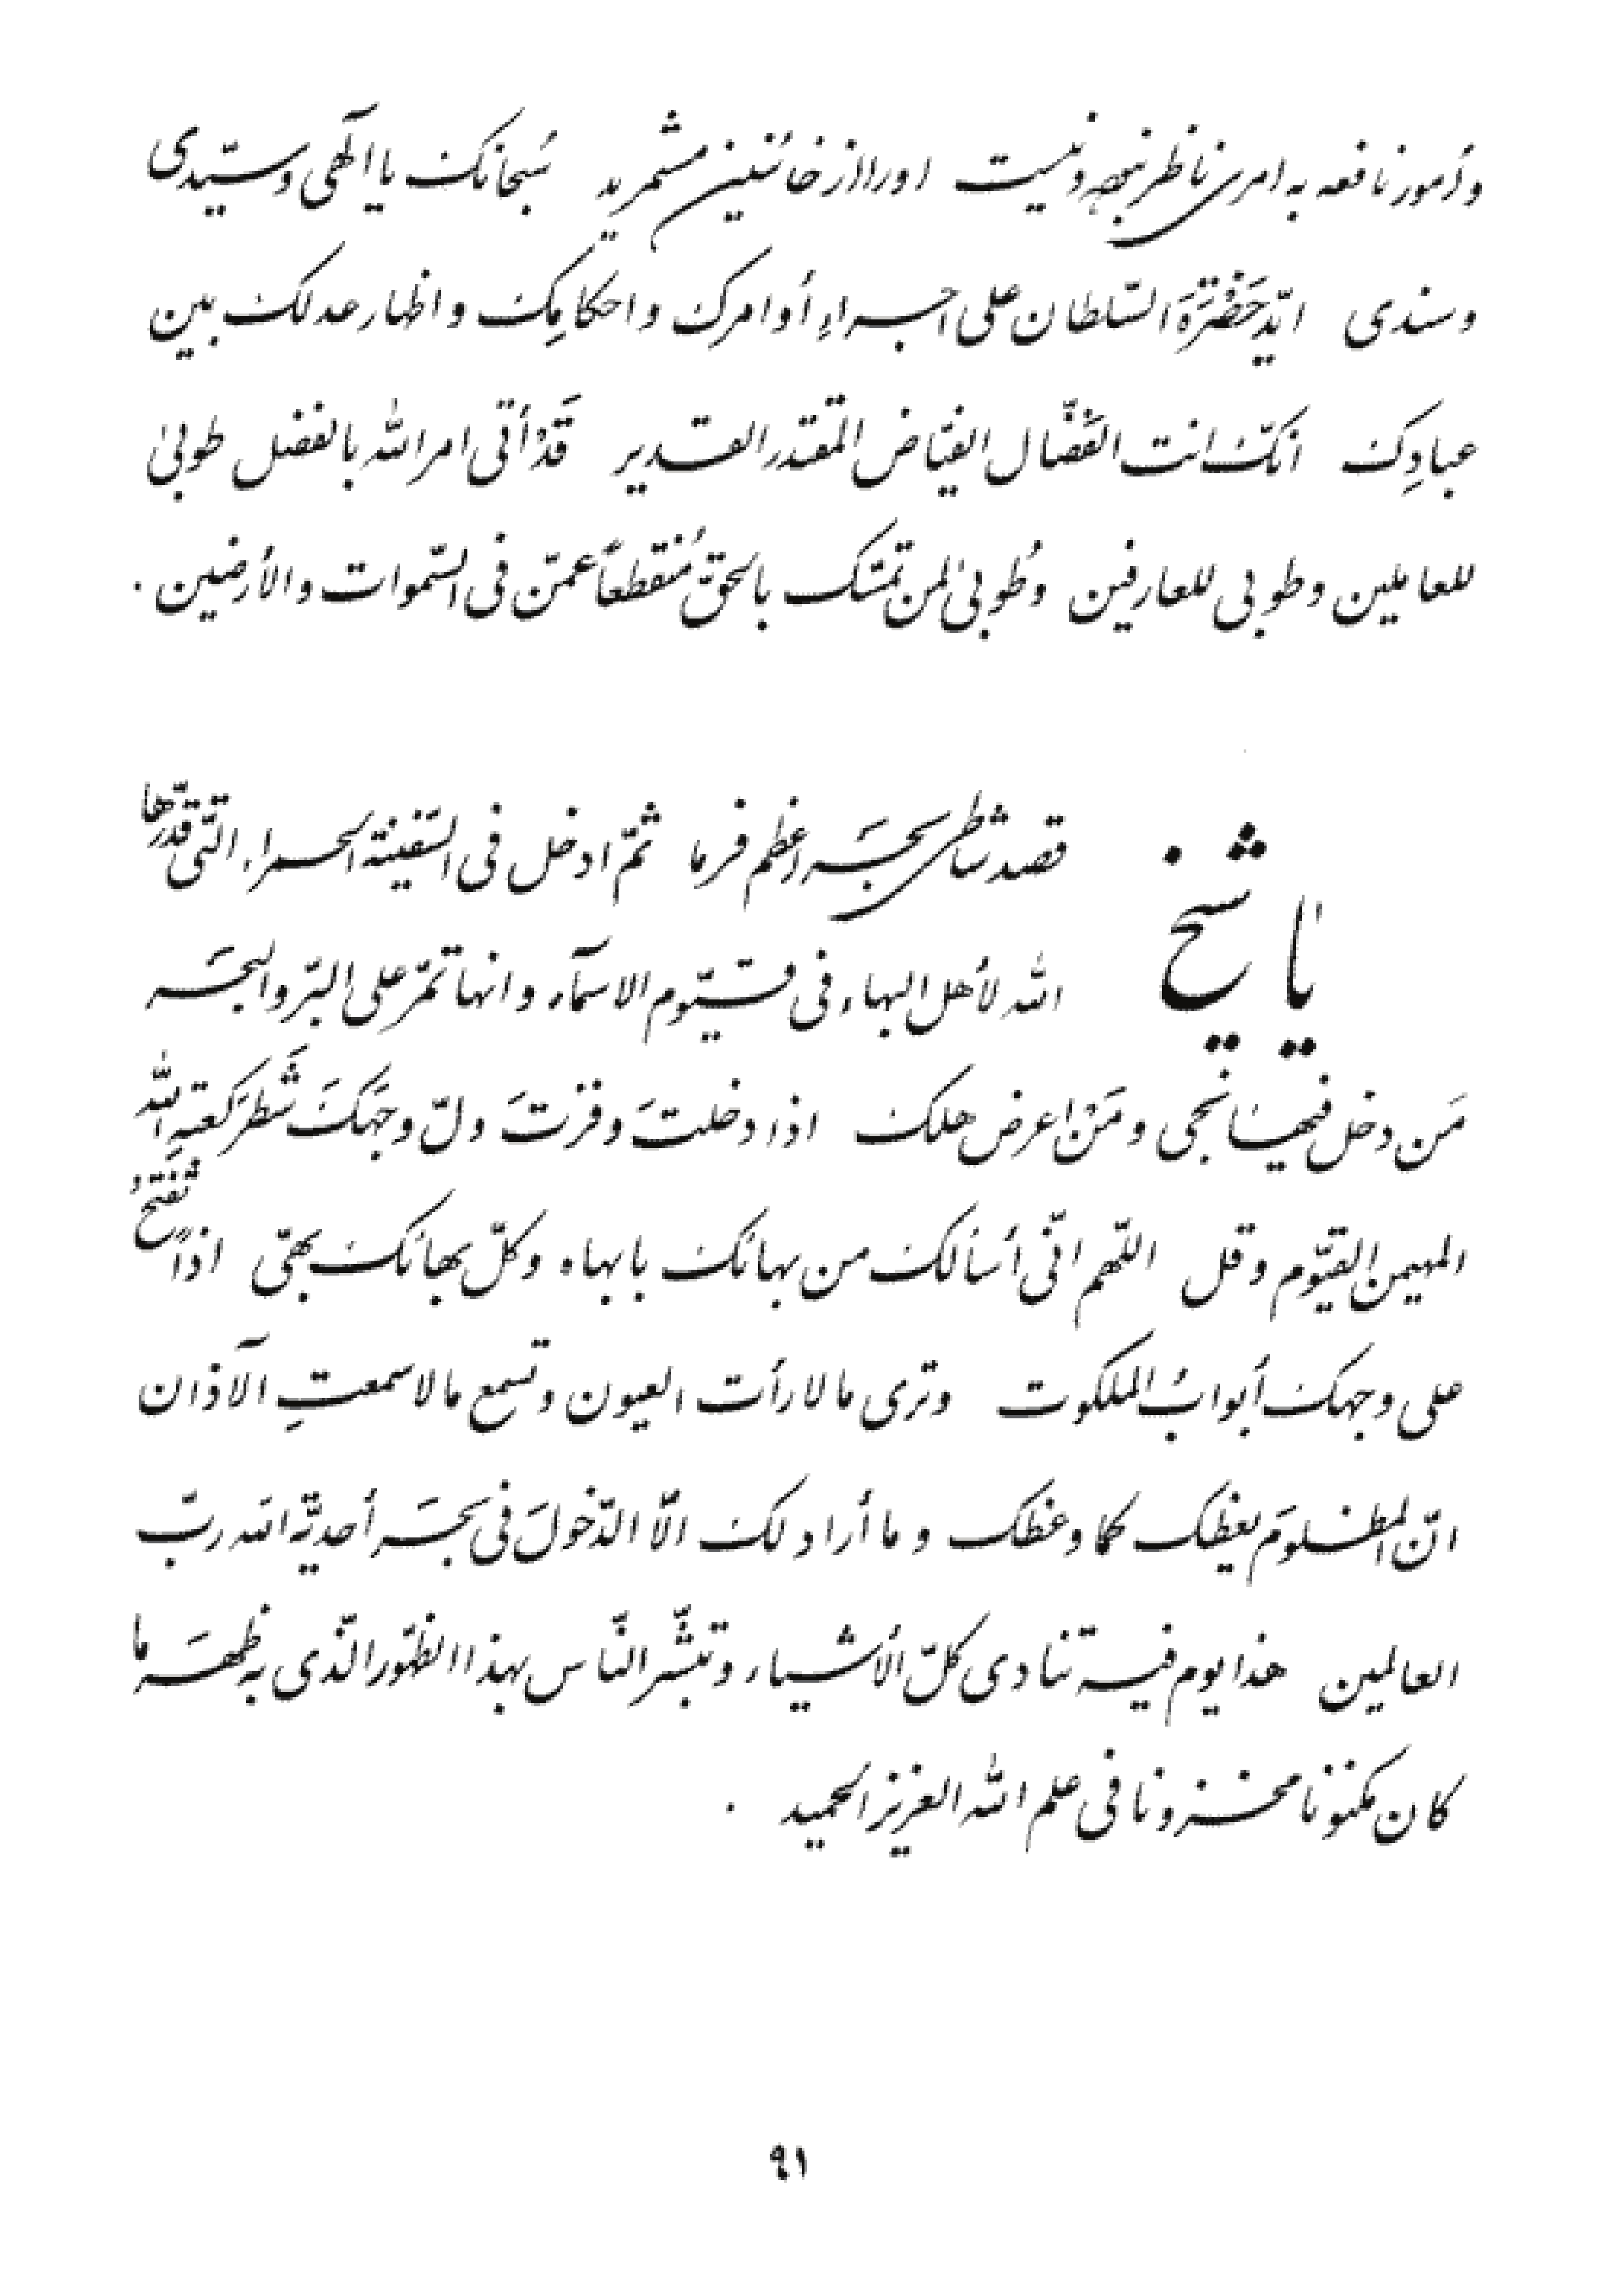 و أمور نافعه به امری ناظر نبوده و نیست او را از خائنین مشمرید سُبحانک یا الهی و سیّدی
و سندی ایّد حَضْرَةَ السّلطان علی اجراءِ أوامرک و احکامِک و اظهار عدلک بین
عبادِک انّک انت الفَضّال الفیّاض المقتدر القدیر قَدْ أتی امر الله بالفضل طوبیٰ
للعاملین و طوبی للعارفین و طُوبیٰ لمن تمسّک بالحقّ مُنقطعاً عمّن فی السّموات و الأرضین .
یا شیخ
قصد شاطی بحَر اعظم فرما ثمّ ادخل فی السّفینة الحمراء الّتی قدّرها
الله لأهل البهاء فی قیّوم الاسمآء و انها تمرّ علی البرّ و البحَر
مَن دخل فیها نجی و مَنْ اعرض هلک اذا دخلتَ و فزتَ ولّ وجهَکَ شَطرَ کعبةِ الله
المهیمن القیّوم و قل اللّهم انّی أسألک من بهائک بابهاه و کلّ بهائک بهیّ اذاً تُفتحُ
علی وجهک أبوابُ الملکوت و تری ما لا رأت العیون و تسمع ما لا سمعتِ الآذان
انّ المظلومَ یعظک کما وعظک و ما أراد لک الّا الدّخولَ فی بحَر أحدیّة الله ربّ
العالمین هذا یوم فیه تنادی کلّ الأشیاء و تبشّر النّاس بهذا الظّهور الّذی به ظهَر ما
کان مکنونا مخزونا فی علم الله العزیز الحمید .
۹۱